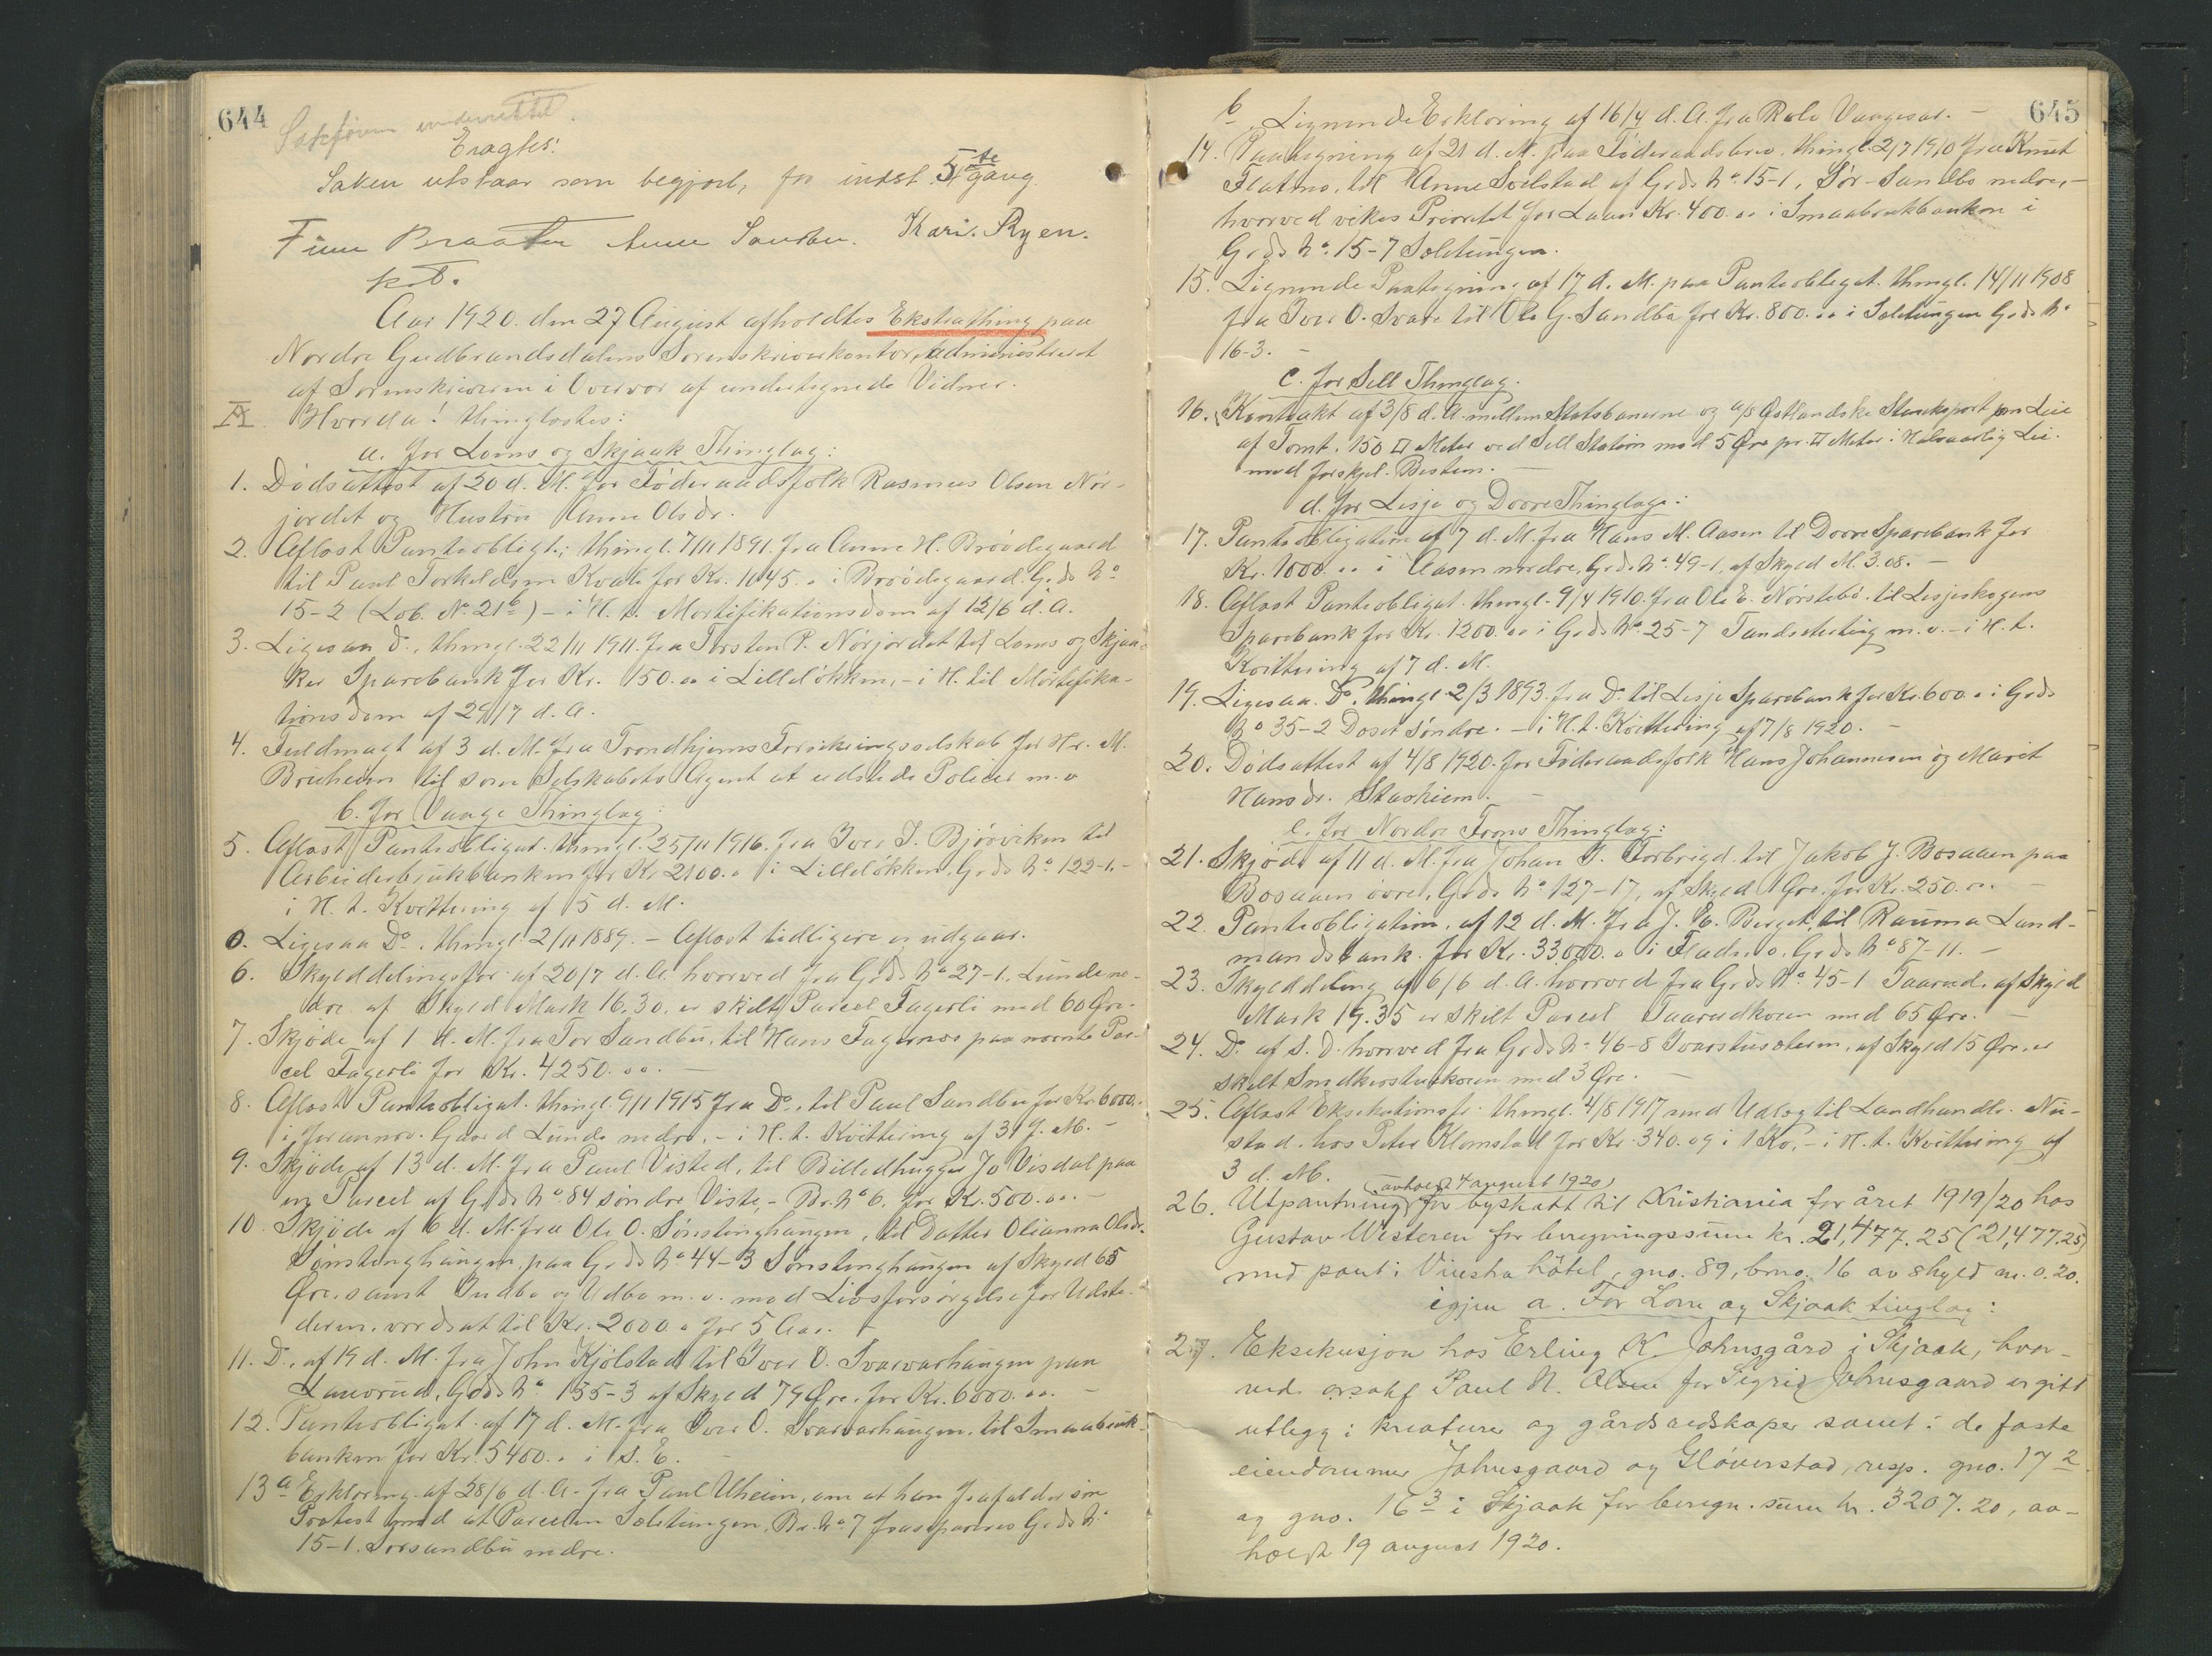 644
Sakføren underrettet.
Eragtes:
Saken utstaar som begjært, for indst. 5te gang.
Finn Braaten Kari Ryen.
kst.
Aar 1920. den 27 August afholdtes Ekstrathing paa
Nordre Gudbrandsdalens Sorenskriverkontor, administreret
af Sorenskriveren i Overvær af undertegnede Vidner.
Hvorda! thinglæstes:
a. for Loms og Skjaak Thinglag:
1. Dødsattest af 20 d. M. for Føderaadsfolk Rasmus Olsen Nør-
jordet og Hustru Anne Olsdr.
2. Aflæst Panteobligt.; thingl. 7/11 1891. fra Anne H. Brøvdegaard
til Paul Torkeldsen Kvale for Kr. 1045.. i Brøvdegaard. G. ds No
15-2 (Løb. No 21b) - i H. t. Mortifikationsdom af 12/6 d. A.
3. Ligesaa Do., thingl. 22/11 1911. fra Torsten P. Nørjordet til Loms og Skjaa-
ker Sparebank for Kr. 150.oo i Lilleløkken, - i H. til Mortifika-
tionsdom af 29/7 d. A.
4. Fuldmagt af 3 d. M. fra Trondhjems Forsikringsselskab for Hr. M.
Bruheim til som Selskabets Agent at udstede Policer m. v
b. for Vaage Thinglag
5. Aflæst Panteobligat. thingl. 25/11 1916. fra Iver I. Bjørviken til
Arbeiderbrukbanken for Kr 2100.. i Lilleløkken, G. ds No 122-1, -
i H. t. Kvittering af 5 d. M.
0. Ligesaa Do. thingl. 2/11 1889. - Aflæst tidligere og udgaar.
6. Skylddelingsfor. af 20/7 d. A. hvorved fra G. ds No 27-1, Lunde ne-
dre af Skyld Mark 16.30. er skilt Parcel Fagerli med 60 Øre.
7. Skjøde af 1 d. M. fra Tor Sandbu, til Hans Fagernæs paa nævnte Par-
cel Fagerli for Kr. 4250.oo. -
8. Aflæst Panteobligat. thingl. 9/1 1915 fra Do., til Paul Sandbu for Kr. 6000..
i forannæv. Gaard Lunde nedre, - i H. t. Kvittering af 31 f. M. -
9. Skjøde af 13 d. M. fra Paul Visted, til Billedhugger Jo Visdal paa
en Parcel af G. ds No 84 søndre Viste, - Br. No 6. for Kr. 500.oo. -
10. Skjøde af 6 d. M. fra Ole O. Sønstinghaugen, til Datter Olianna Olsdr.
Sønstinghaugen, paa G. ds No 44-3 Sønstinghaugen af Skyld 65
Øre, samt Indbo og Udbo m. v. mod Livsforsørgelse for Udste-
deren, værdsat til Kr. 2000.. for 5 Aar. -
11. Do., af 19 d. M. fra John Kjølstad til Iver O. Svarvarhaugen paa
G. ds No 155-3 af Skyld 79 Øre, for Kr. 6000.oo. -
12. Panteobligat. af 17 d. M. fra Iver O. Svarvarhaugen, til Smaabruk-
banken for Kr. 5400.. i s. E. -
13a Erklæring af 28/6 d. A. fra Paul Uheim, om at han frafalder sin
Protest mod at Parcelen Soletungen, Br. No 7 frasepareres G. ds No
15-1. Sørsandbu nedre.
645
b. Lignende Erklæring af 16/4 d. A. fra Vaagesar. -
14. Paategning af 21 d. M. paa Føderaadsbrev, thingl. 2/7 1910 fra Knut
Flatmo, til Anne Solstad af G. ds No 15-1, Sør-Sandbo nedre, -
hvorved vikes Prioritet for Laan Kr. 400.oo i Smaabrukbanken i
G. ds No 15-7 Soletungen.
15. Lignende Paategning af 17 d. M. paa Panteobligat. thingl. 14/11 1908
fra Iver O. Svare til Ole G. Sandbu for Kr. 800.oo i Soletungen G. ds No
16-3. -
c. for Sell Thinglag.
16. Kontrakt af 3/8 d. A. mellem Statsbanerne og A/S Østlandske Steneksport om Leie
af Tomt. 150 □ Meter ved Sell Station mod 5 Øre pr. □ Meter i Halvaarlig Leie.
med forskjel. Bestem. -
d. for Lesje og Dovre Thinglage:
17. Panteobligation af 7 d. M. fra Hans M. Aasen til Dovre Sparebank for
Kr. 1000.oo i Aasen nordre, G. ds No 49-1, af Skyld M. 3.08. -
18. Aflæst Panteobligat. thingl. 9/4 1910. fra Ole E. Nørstebø. til Lesjeskogens
Sparebank for Kr. 1200.oo i G. ds No 25-7 m. v. - i H. t.
Kvittering af 7 d. M.
19. Ligesaa Do. thingl. 2/3 1893. fra Do. til Lesje Sparebank for Kr. 600.. i G. ds
No 35-2 Doset søndre. - i H. t. Kvittering af 7/8 1920. -
20. Dødsattest af 4/8 1920. for Føderaadsfolk Hans Johannesen og Marit
Hansdr. Stavheim. -
e. for Nordre Frons Thinglag:
21. Skjøde af 11 d. M. fra Johan T. Forbrigd. til Jakob J. Bosaaen paa
Bosaaen øvre, G. ds No 127-17, af Skyld 1 Øre, for Kr. 250.oo. -
22. Panteobligation, af 12 d. M. fra J. E. Berget, til Rauma Land-
mandsbank. for Kr. 33.000.. i Fladmo, G. ds No 87-11. -
23. Skylddeling af 6/6 d. A. hvorved fra G. ds No 45-1 Taarud, af Skyld
Mark 19.35 er skilt Parcel Taarudkven med 65 Øre. -
24. Do. af S. D. hvorved fra G. ds No 46-8 af Skyld 15 Øre, er
skilt med 3 Øre. -
25. Aflæst Eksekutionsfr. thingl. 4/8 1917 med Udlæg til Landhandler Nu-
stad hos Peter Klomstad for Kr. 340. og i 1 Ko, - i H. t. Kvittering af
3 d. M.
(avholdt 4 august 1920)
26. Utpantning for byskatt til Kristiania for året 1919/20 hos
Gustav Wisteren for beregningssum kr. 21,477.25 (21,477.25)
med pant i Vinstra hôtel, gno. 89, brno. 16 av skyld m. 0.20.
igjen a. For Lom og Skjaak tinglag:
27. Eksekusjon hos Erling K. Johnsgård i Skjaak, hvor-
ved o.r.sakf. Paul N. Olsen for Sigrid Johnsgaard er gitt
utlegg i kreaturer og gårdsredskaper samt i de faste
eiendommer Johnsgaard og Gløverstad, resp. gno. 17 2
og gno. 16 3 i Skjaak for beregn. sum kr. 3207.20, av-
holdt 19 august 1920.